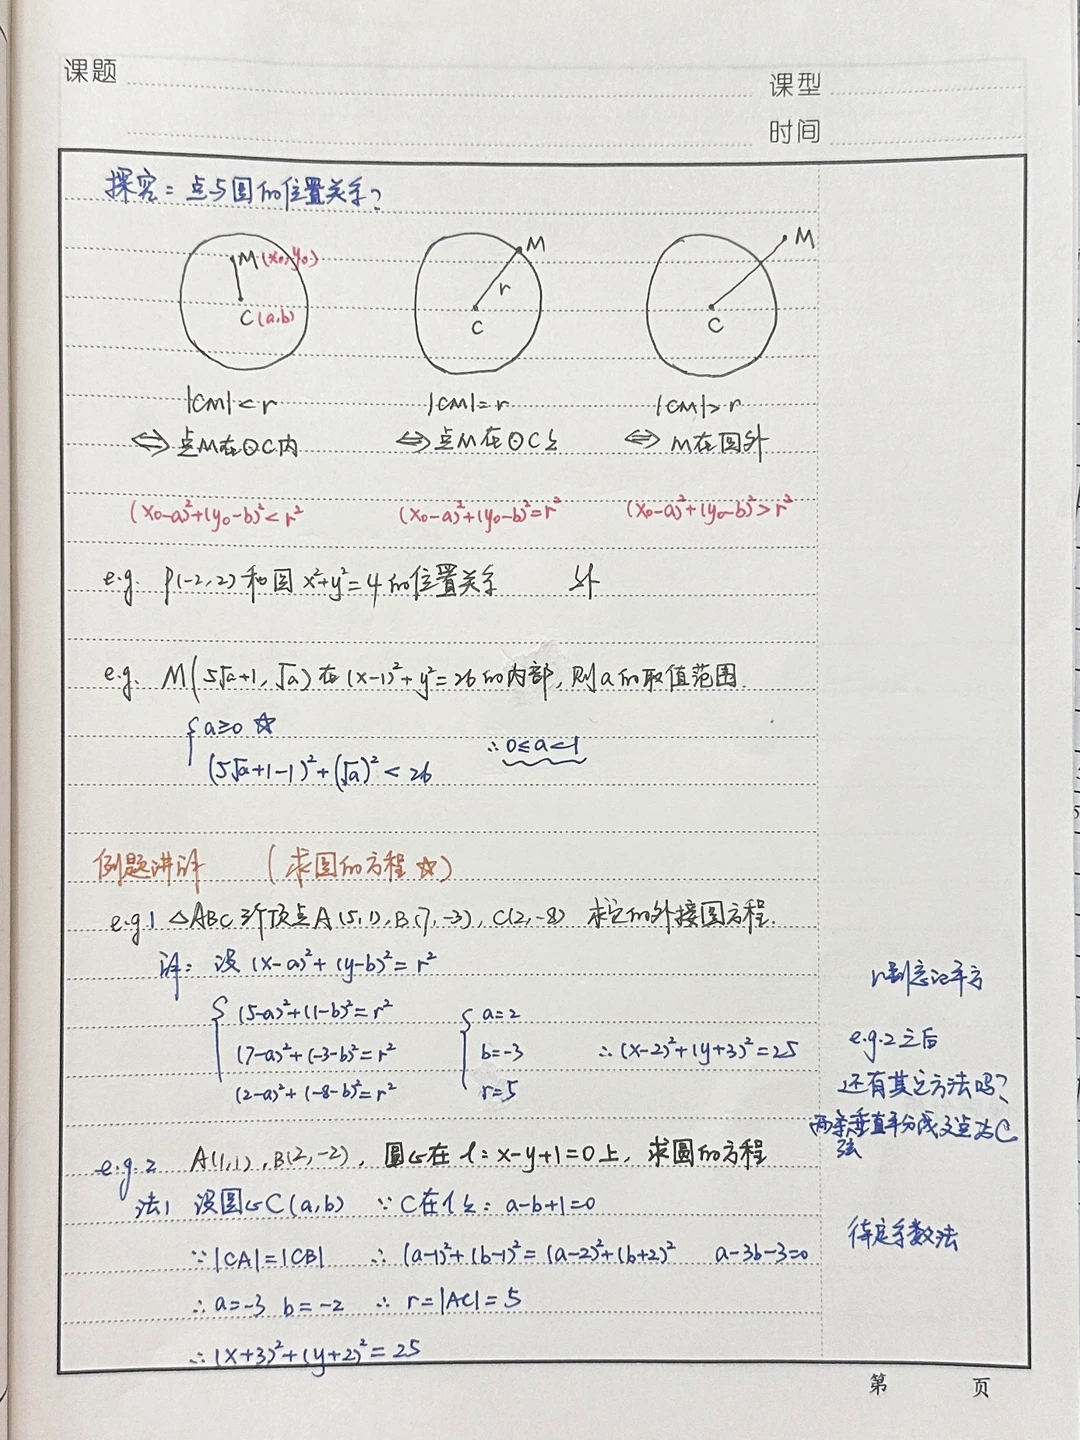 课题
课型
时间
探究：点与圆的位置关系？
M(x₀,y₀)
C(a,b)
M
r
C
M
C
|CM|<r
|CM|=r
|CM|>r
⇔点M在⊙C内
⇔点M在⊙C上
⇔ M在圆外
(x₀-a)²+(y₀-b)²<r²
(x₀-a)²+(y₀-b)²=r²
(x₀-a)²+(y₀-b)²>r²
e.g. P(-2,2)和圆x²+y²=4的位置关系 外
e.g. M(5√a+1,√a)在(x-1)²+y²=26的内部,则a的取值范围.
{ a≥0 ☆
(5√a+1-1)²+(√a)²<26
∴0≤a<1
例题讲解 (求圆的方程☆)
e.g.1 △ABC三个顶点A(5,1),B(7,-3),C(2,-8) 求它的外接圆方程.
解：设(x-a)²+(y-b)²=r²
{ (5-a)²+(1-b)²=r²
(7-a)²+(-3-b)²=r²
(2-a)²+(-8-b)²=r²
{ a=2
b=-3
r=5
∴(x-2)²+(y+3)²=25
e.g.2 A(1,1),B(2,-2),圆心在l:x-y+1=0上,求圆的方程
法1 设圆心C(a,b) ∵C在l上：a-b+1=0
∵|CA|=|CB| ∴(a-1)²+(b-1)²=(a-2)²+(b+2)² a-3b-3=0
∴a=-3 b=-2 ∴r=|AC|=5
∴(x+3)²+(y+2)²=25
r别忘记平方
e.g.2之后
还有其它方法吗？
两条垂直平分线交点为C
弦
待定系数法
第 页